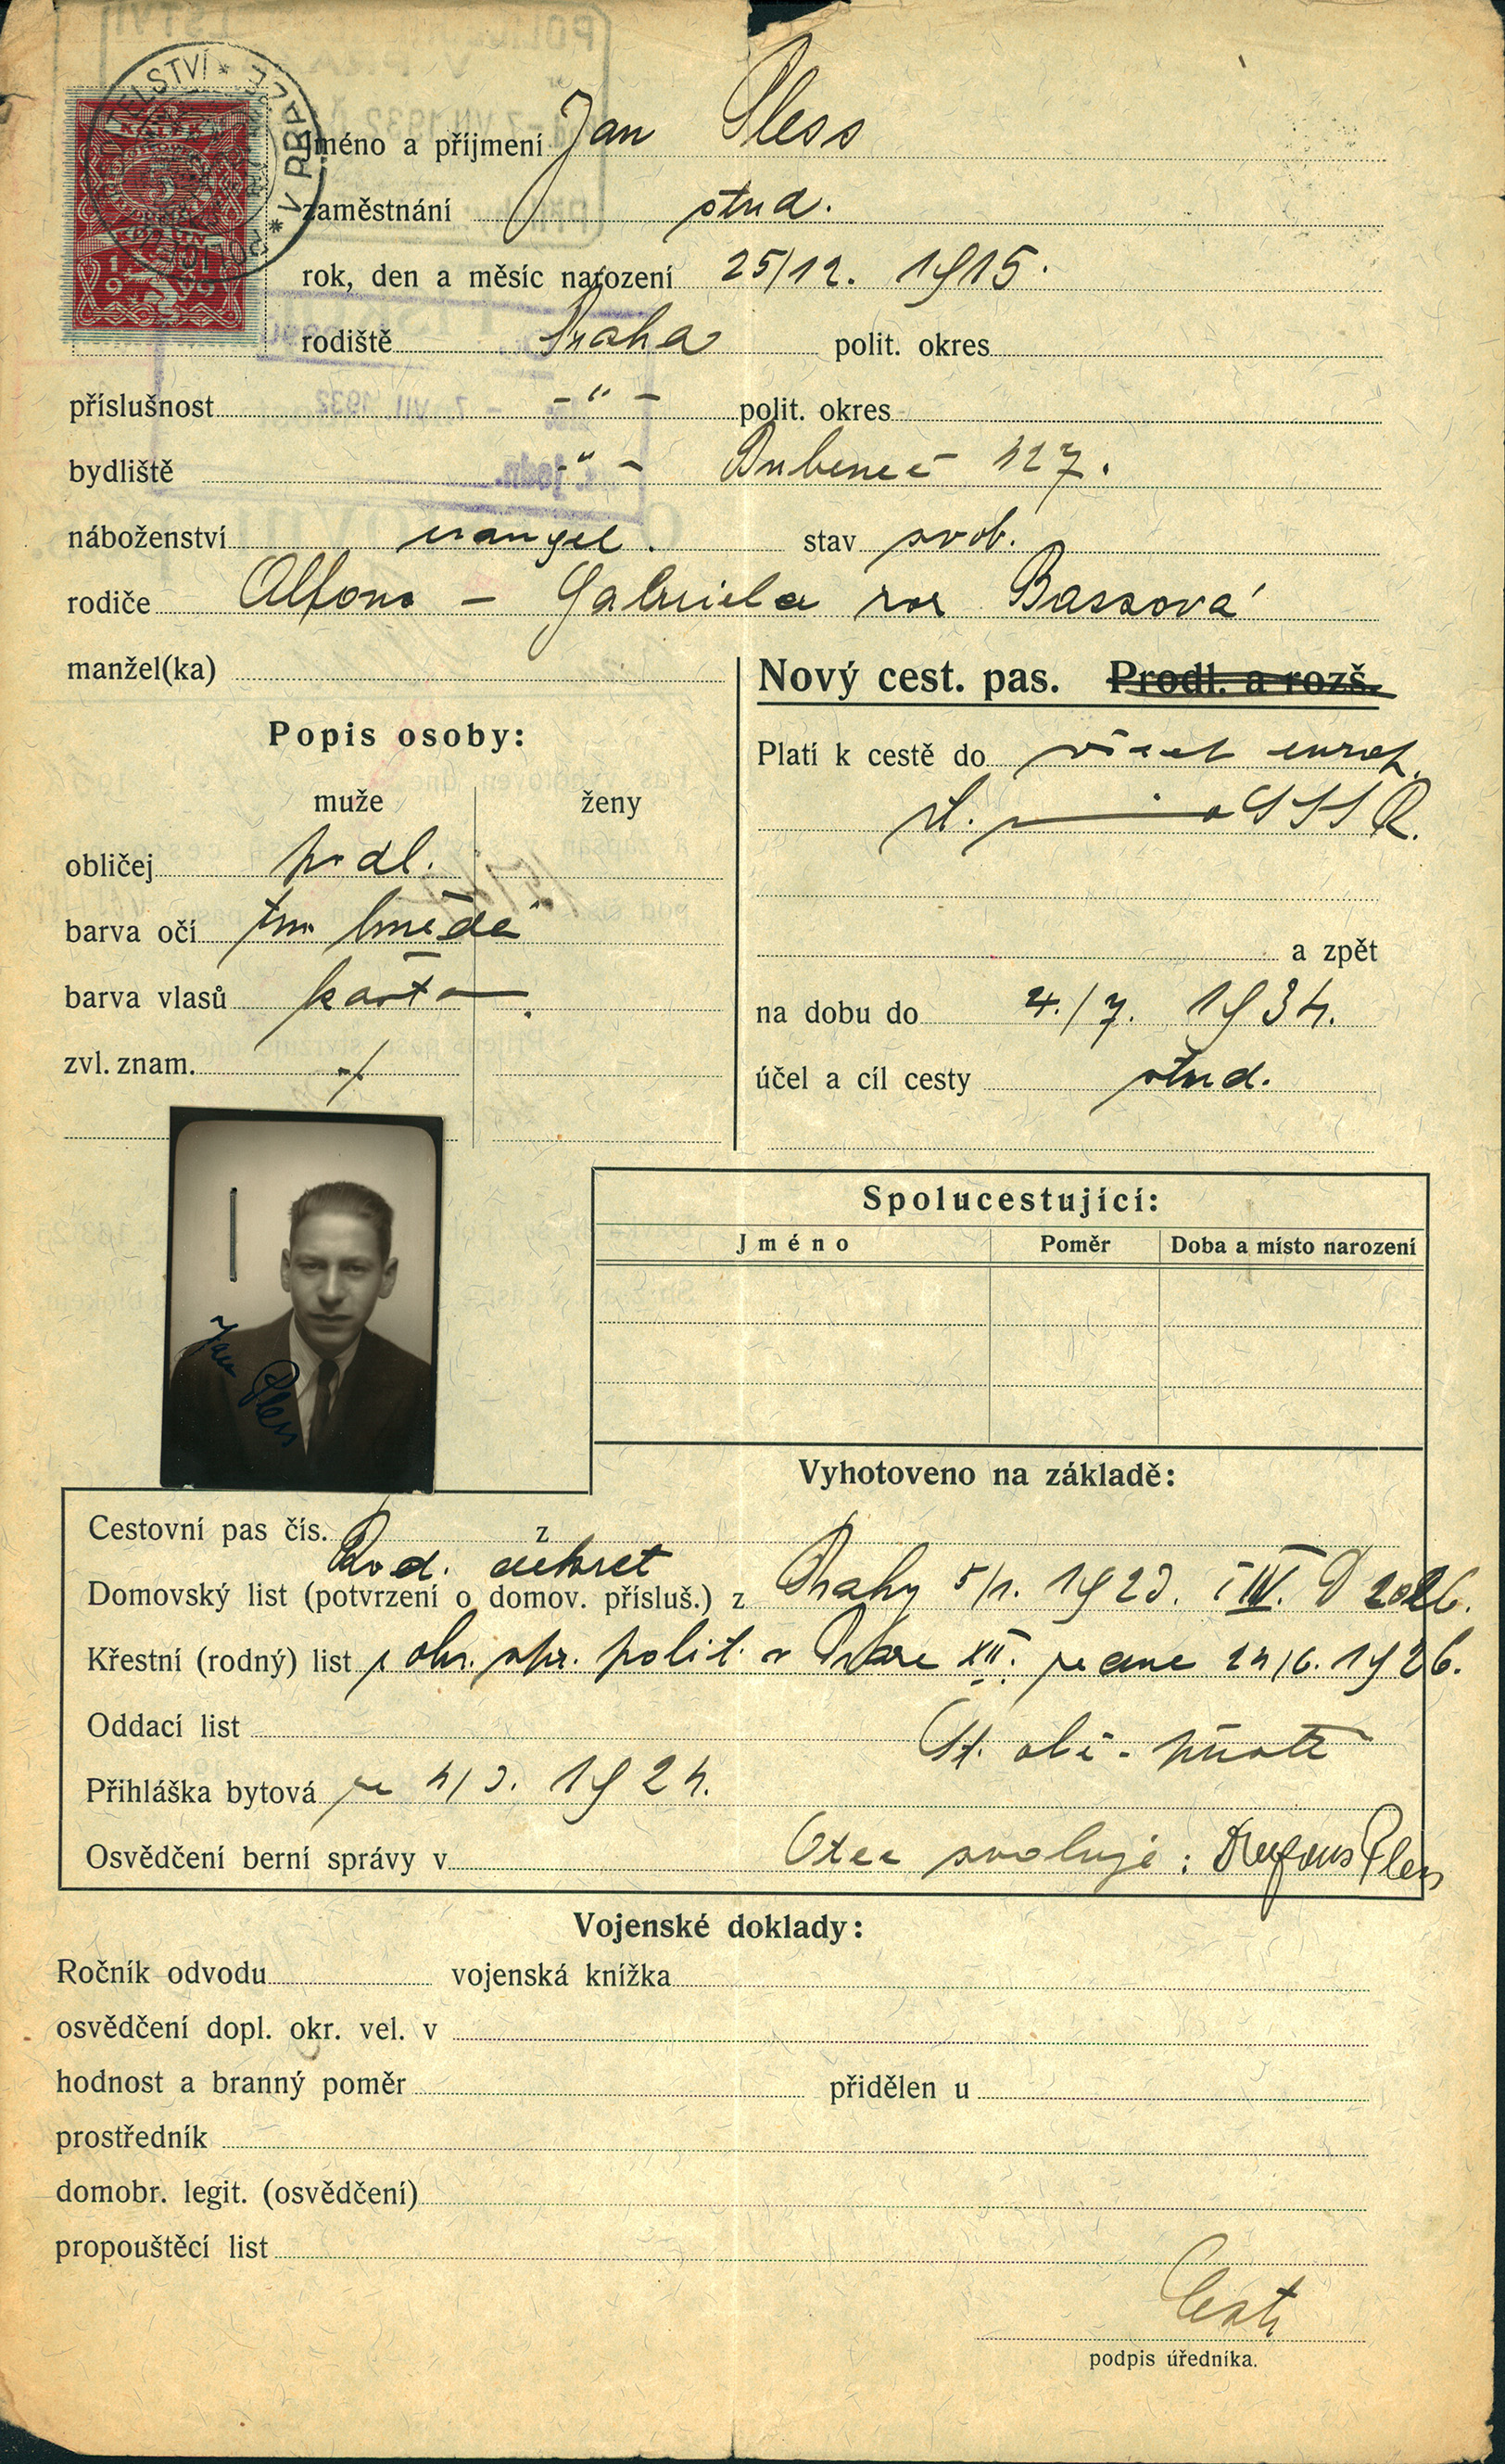 Jméno a příjmení Jan Pless
zaměstnání stud.
rok, den a měsíc narození 25/12. 1915.
rodiště Praha polit. okres
příslušnost -"- polit. okres
bydliště -"- Bubeneč 427.
náboženství evangel. stav svob.
rodiče Alfons - Gabriela roz Bassová
manžel(ka)
Nový cest. pas. Prodl. a rozš.
Popis osoby:
muže ženy
obličej podl.
barva očí tm. hnědé
barva vlasů kašta
zvl. znam. ./.
Platí k cestě do všech evrop.
st. SSSR.
a zpět
na dobu do 4./7. 1934.
účel a cíl cesty stud.
Jan Pless
Spolucestující:
Jméno Poměr Doba a místo narození
Vyhotoveno na základě:
Cestovní pas čís. z
dekret
Domovský list (potvrzení o domov. přísluš.) z Prahy 5/1. 1923.
Křestní (rodný) list polit. v Praze XII. ze dne 24/6. 1926.
St. obč.
Oddací list
Přihláška bytová ze 4/3. 1924.
Osvědčení berní správy v Otec svoluje: Alfons Pless
Vojenské doklady:
Ročník odvodu vojenská knížka
osvědčení dopl. okr. vel. v
hodnost a branný poměr přidělen u
prostředník
domobr. legit. (osvědčení)
propouštěcí list
podpis úředníka.